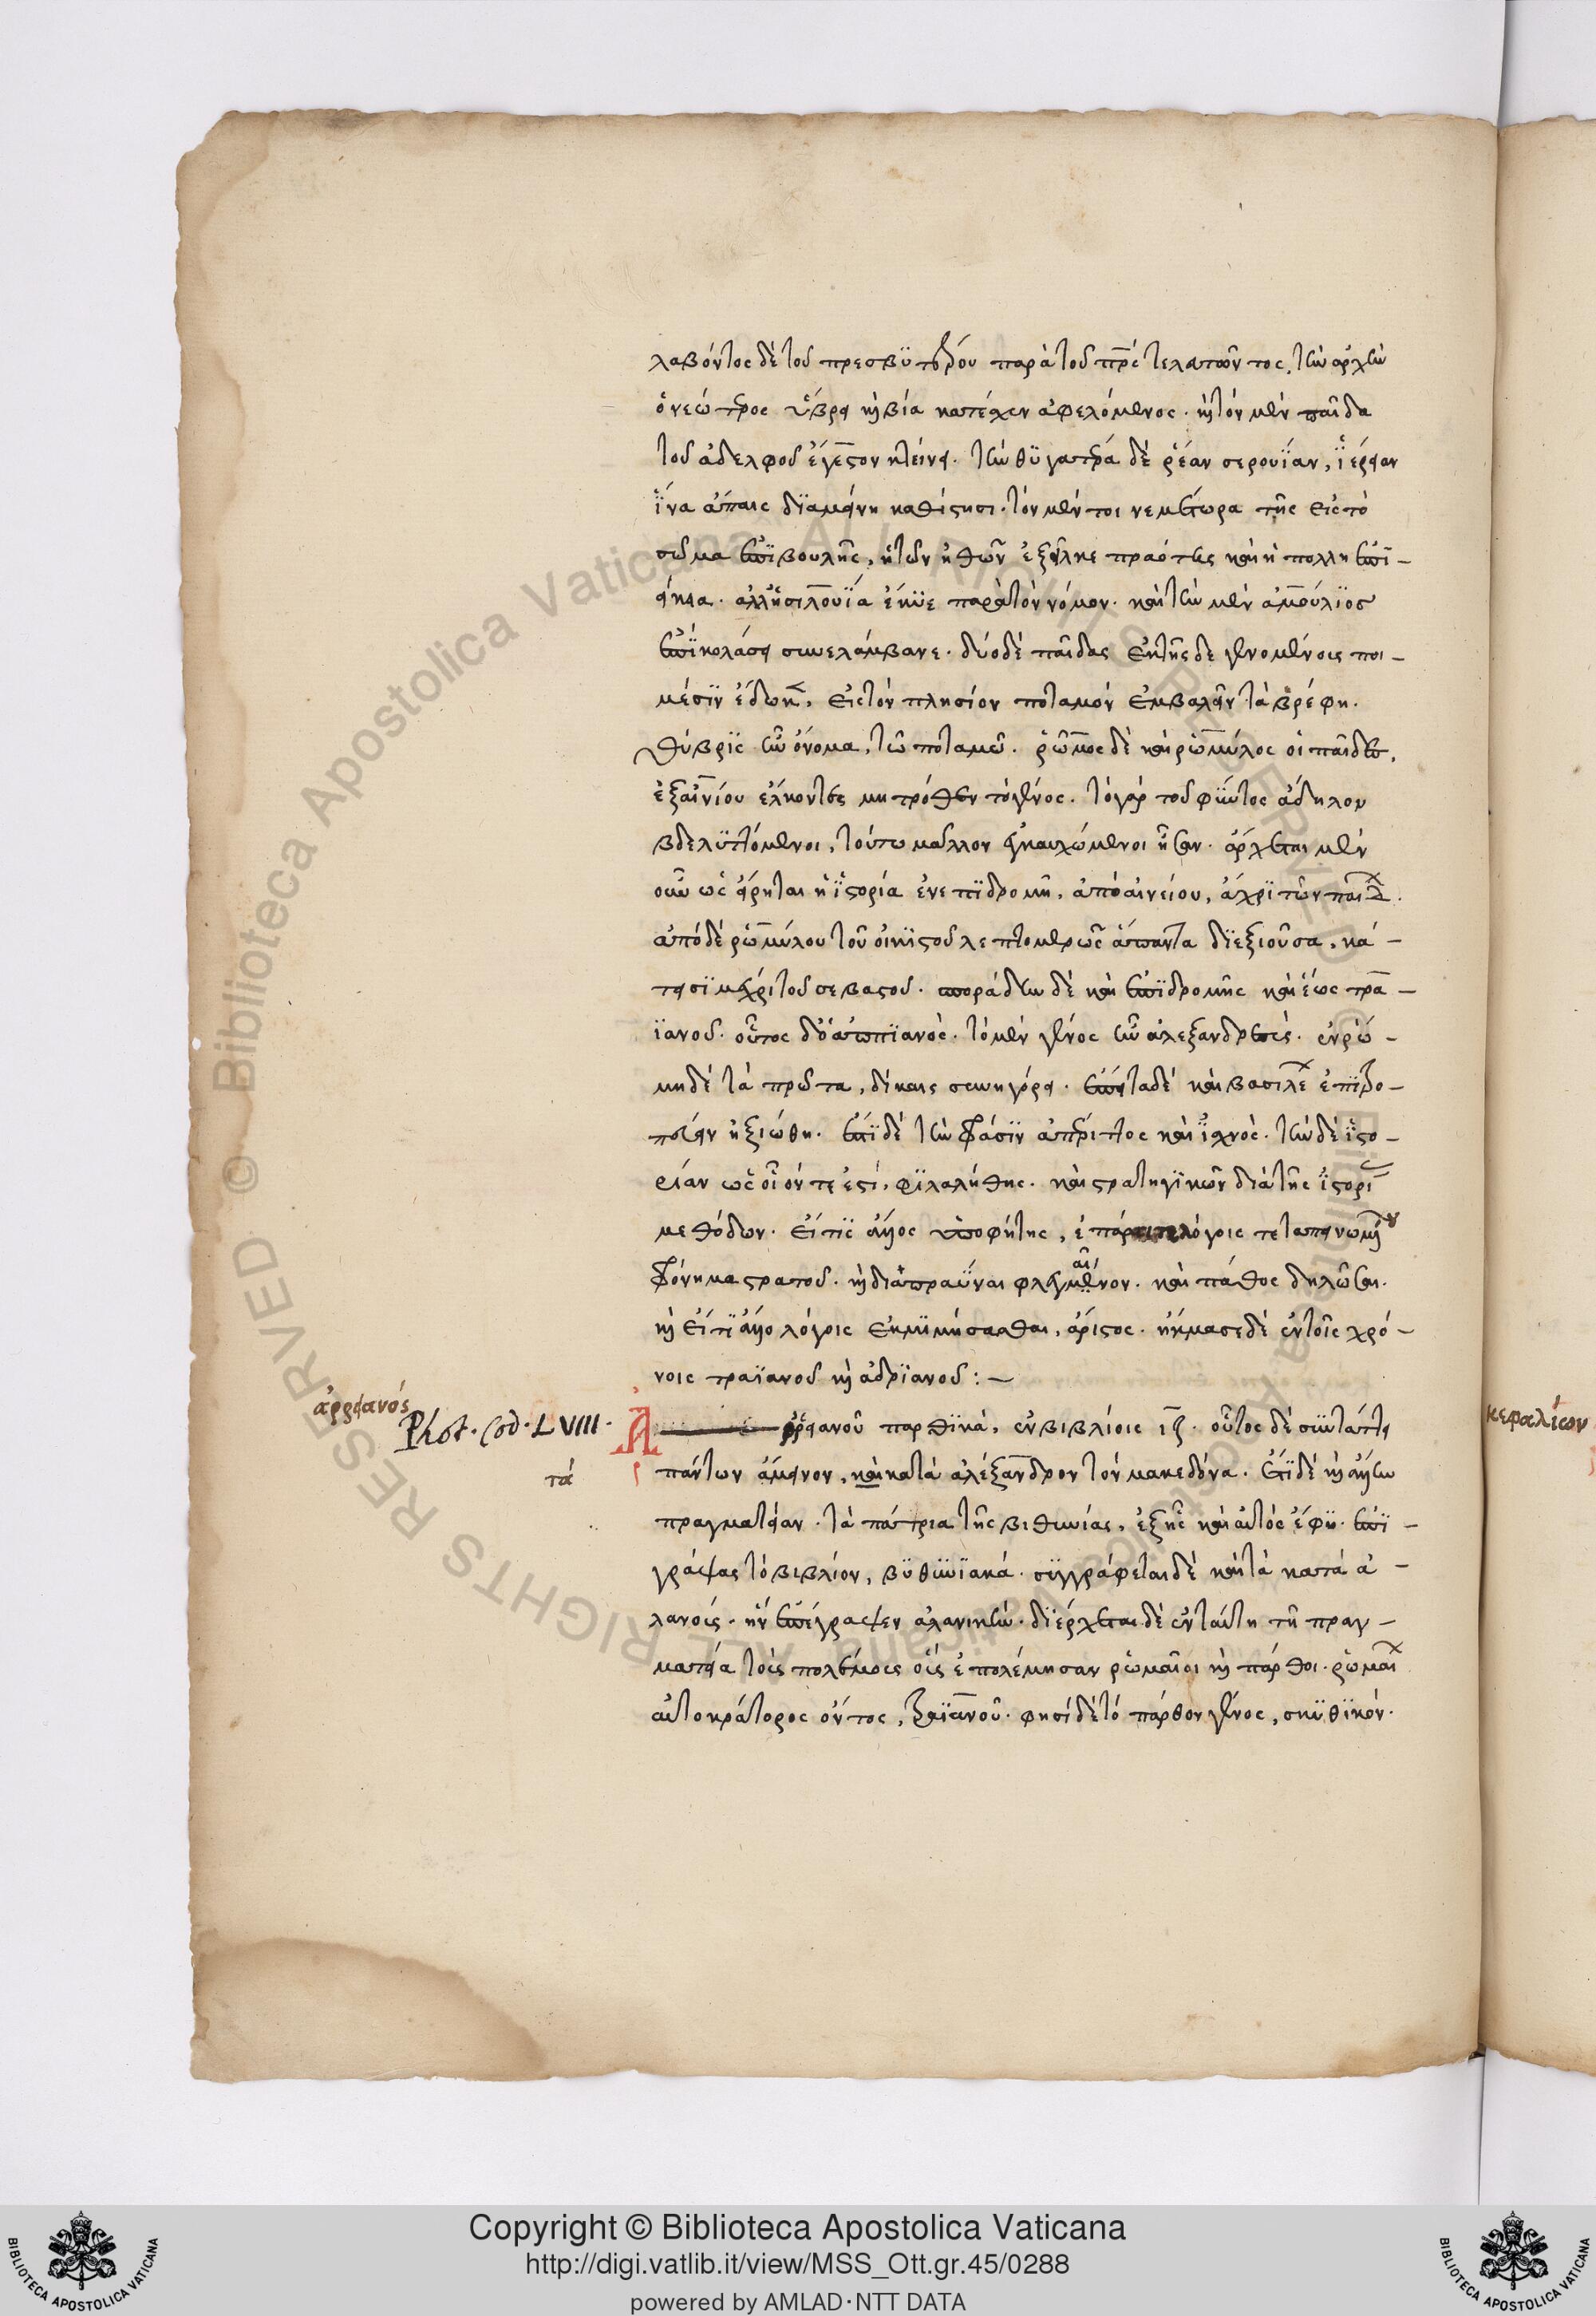 λαβόντος δὲ τοῦ πρεσβϋτέρου παρὰ τοῦ πρς τελευτῶντος, τὴν ἀρχὴν
ὁ νεώτερος ὕβρει κ βία κατέχειν ἀφελόμενος. κ τὸν μὲν παῖδα
τοῦ ἀδελφοῦ ἔγεστον κτείνει. τὴν θϋγατέρα δὲ ῥέαν σερουΐαν, ϊέρειαν
ἵνα ἄπαις διαμείνη καθίστησι. τὸν μέντοι νεμέτωρα τῆς εἰς τὸ
σῶμα ἐπϊβουλῆς, ἡ τῶν ἠθῶν ἐξεῖλκε πραότης καὶ ἡ πολλὴ ἐπϊ-
είκεια. ἀλλ' ἡ σιλουΐα ἔκϋε παρὰ τὸν νόμον. καὶ τὴν μὲν ἀμούλϊος
ἐπϊ κολάσει συνελάμβανε. δύο δὲ παῖδας ἐκ τῆς δε γενομένοις ποι-
μέσϊν ἔδωκεν, εἰς τὸν πλησίον ποταμὸν ἐμβαλεῖν τὰ βρέφη.
Θύβρϊς ἦν ὄνομα, τῶ ποταμῶ. ῥῶμος δὲ καὶ ῥωμύλος οἱ παῖδες,
ἐξ αἰνίου ἕλκοντες μητρόθεν τὸ γένος. τὸ γὰρ τοῦ φύντος ἄδηλον
βδελϋττόμενοι, τούτω μᾶλλον ἐγκαυχώμενοι ἦσαν. ἄρχεται μὲν
οὖν ὡς εἴρηται ἡ ἱστορία ἐν ἐπϊδρομῆ, ἀπὸ αἰνείου, ἄχρϊ τῶν παίδ.
ἀπὸ δὲ ῥωμύλου τοῦ οἰκϊστοῦ λεπτομερῶς ἅπαντα διεξιοῦσα, κά-
τεισϊ μέχρι τοῦ σεβαστοῦ. σποράδην δὲ καὶ ἐπϊδρομῆς καὶ ἕως τρα-
ϊανοῦ. οὗτος δ' ὁ ἀππϊανὸς. τὸ μὲν γένος ἦν ἀλεξανδρεὺς. ἐν ῥώ-
μη δὲ τὰ πρῶτα, δίκαις συνηγόρει. ἔπειτα δὲ καὶ βασιλέ ἐπϊτρο-
πεύειν ἠξιώθη. ἔστϊ δὲ τὴν φράσϊν ἀπέριττος καὶ ἰσχνὸς. τὴν δὲ ἱστο-
ρίαν ὡς οἷόν τε ἐστὶ, φϊλαλήθης. καὶ στρατηγϊκῶν διὰ τῆς ἱστορί
μεθόδων. εἴ τϊς ἄλλος ὑποφήτης, ἐπάραι τε λόγοις τεταπεινωμένον
φρόνημα στρατοῦ. κ διαπραῧναι φλεγμαῖνον. καὶ πάθος δηλῶσαι.
κ εἴ τϊ ἄλλο λόγοις ἐκμϊμήσασθαι, ἄριστος. ἤκμασε δὲ ἐν τοῖς χρό-
νοις τραϊανοῦ κ ἀδρϊανοῦ:—
ἀρρειανός
Phot. Cod. LVIII.
Α ἀρρειανοῦ παρθϊκὰ, ἐν βιβλίοις ιζ. οὗτος δὲ συντάττει
τά
πάντων ἄμεινον, καὶ κατὰ ἀλέξανδρον τὸν μακεδόνα. ἔστϊ δὲ κ ἄλλην
πραγματείαν. τὰ πάτρια τῆς βιθυνίας, ἐξ ἧς καὶ αὐτὸς ἔφυ. ἐπϊ-
γράψας τὸ βιβλίον, βϋθυνϊακά. συγγράφεται δὲ καὶ τὰ κατὰ ἀ-
λανοὺς. ἣν ἐπέγραψεν ἀλανικὴν. διέρχεται δὲ ἐν ταύτη τῆ πραγ-
ματεία τοὺς πολέμους οὓς ἐπολέμησαν ῥωμαῖοι κ πάρθοι. ῥωμαί
αὐτοκράτορος ὄντος, τραϊανοῦ. φησὶ δὲ τὸ πάρθον γένος, σκϋθϊκόν.
κεφαλίων
Copyright © Biblioteca Apostolica Vaticana
http://digi.vatlib.it/view/MSS_Ott.gr.45/0288
powered by AMLAD·NTT DATA